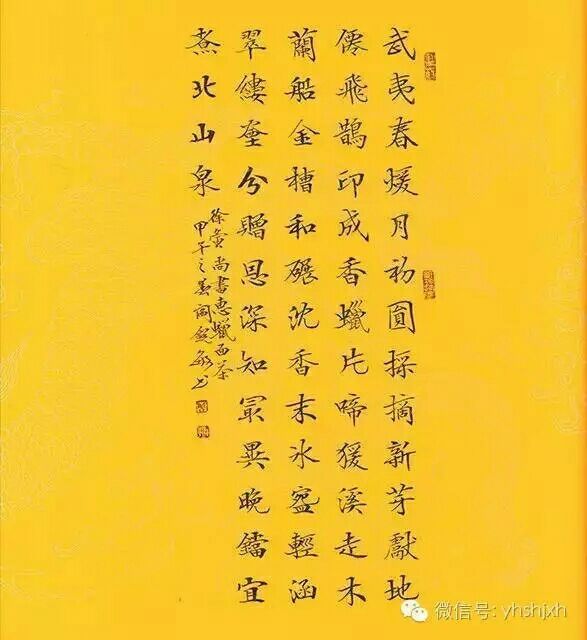 武夷春煖月初圓採摘新芽獻地
僊飛鵲印成香蠟片啼猨溪走木
蘭船金槽和碾沈香末冰盌輕涵
翠縷垔分贈恩深知㝡異晚鐺宜
煮北山泉
徐夤尚書惠蠟面茶
甲午之春
微信号: yhshjxh